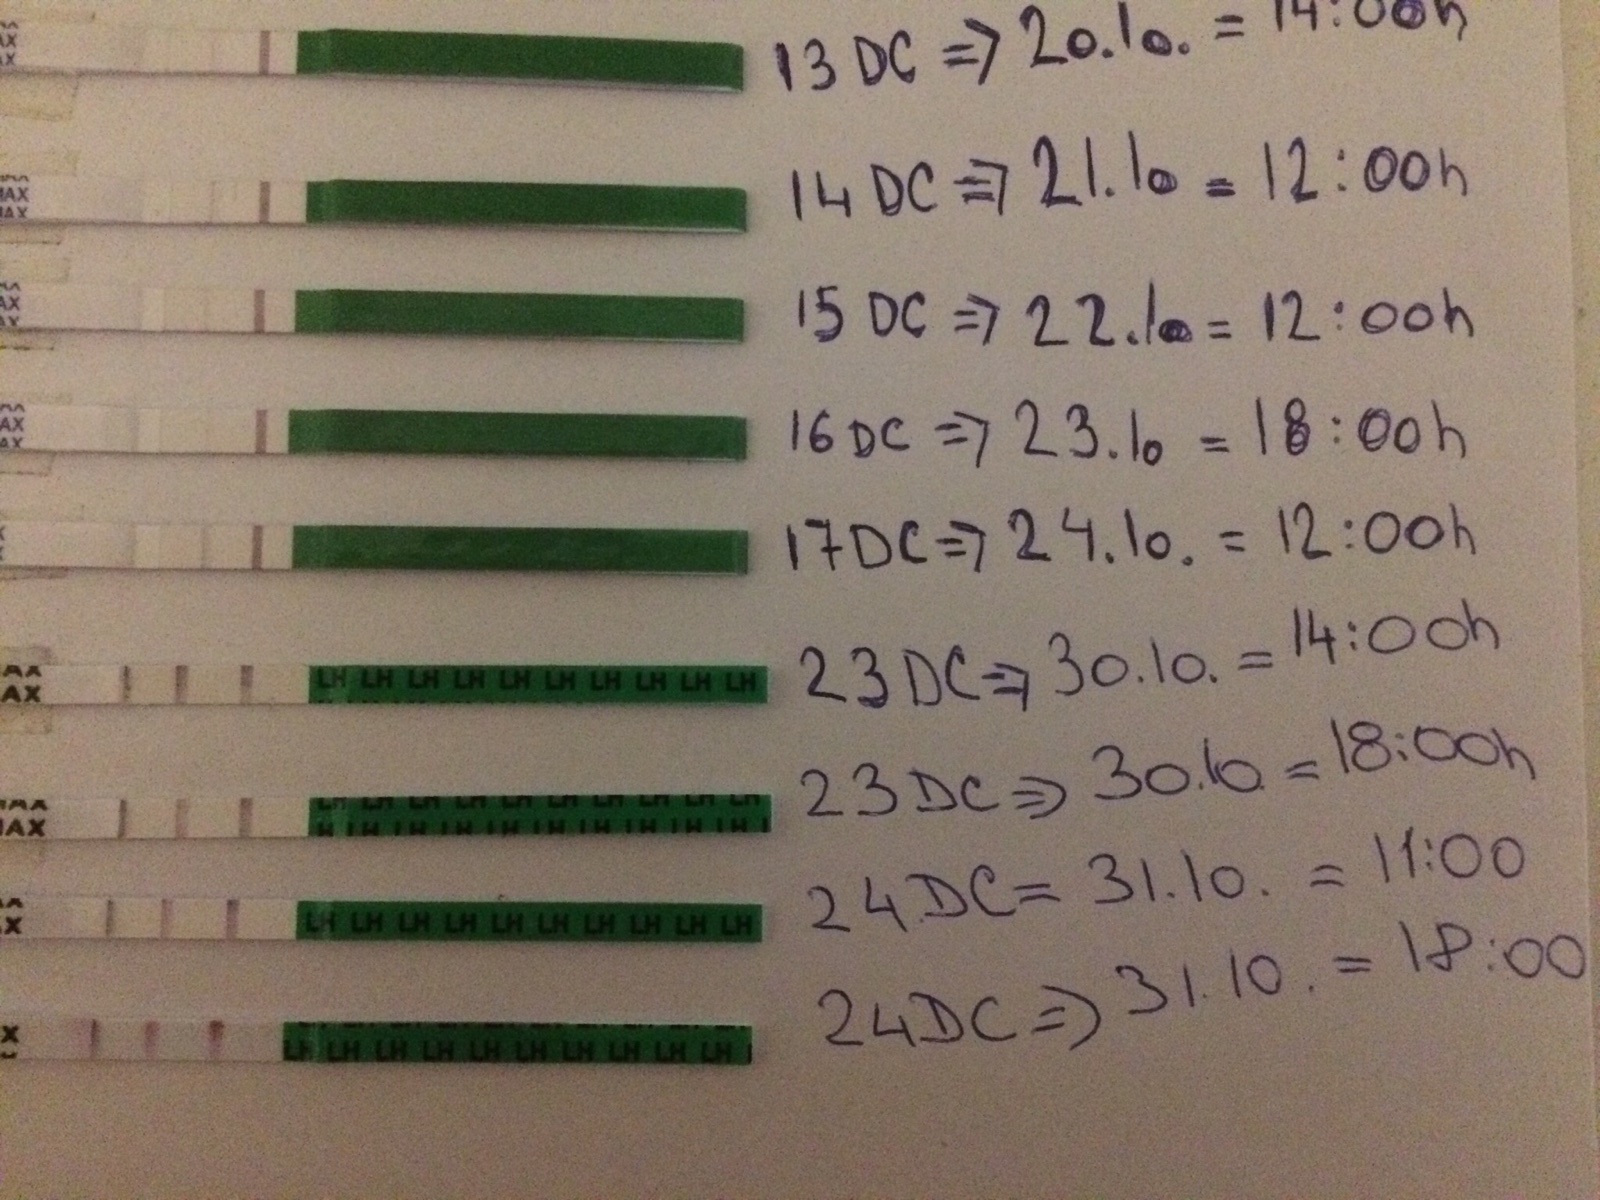 AX
AX
13 DC => 20.10. = 14:00h
MAX
MAX
14 DC => 21.10 = 12:00h
AX
AX
15 DC => 22.10 = 12:00h
AX
AX
16 DC => 23.10 = 18:00h
X
X
17 DC => 24.10. = 12:00h
AX
LH LH LH LH LH LH LH LH LH LH
23 DC => 30.10. = 14:00h
MAX
LH LH LH LH LH LH LH LH LH LH
23 DC => 30.10. = 18:00h
X
LH LH LH LH LH LH LH LH LH LH
24 DC = 31.10. = 11:00
X
LH LH LH LH LH LH LH LH LH LH
24 DC => 31.10. = 18:00